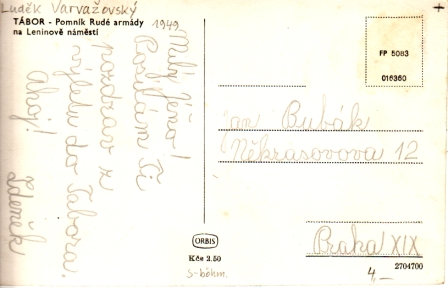 Luděk Varvažovský
TÁBOR - Pomník Rudé armády
na Leninově náměstí
1949
Milý Jéňo!
Posílám Ti
pozdrav z
výletu do Tábora.
Ahoj!
Zdeněk
FP 5083
016360
Jan Bubák
Někrasovova 12
Praha XIX
ORBIS
Kčs 2,50
S-böhm.
2704700
4,—